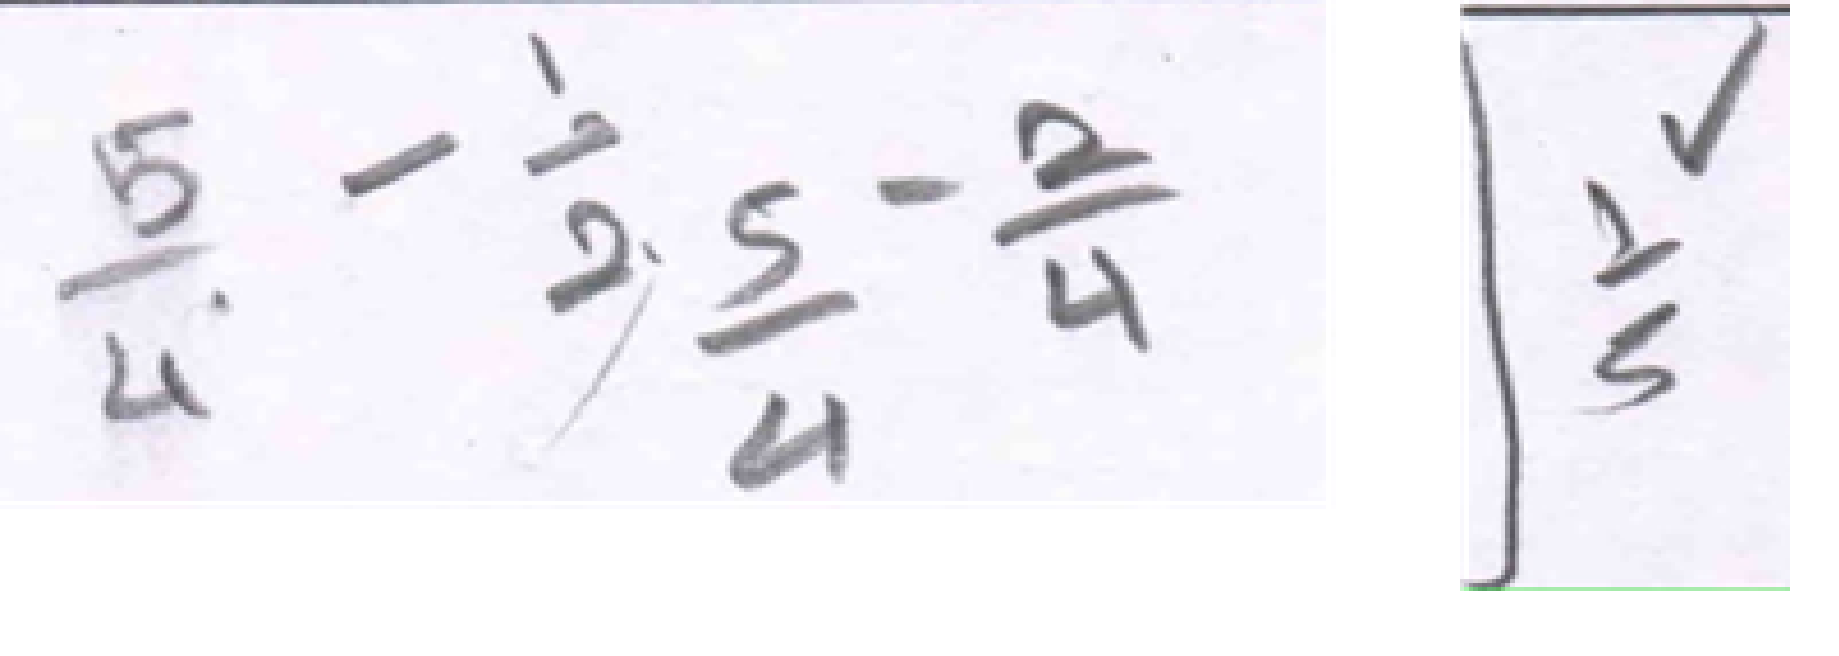 5/4 - 1/2, 5/4 - 2/4
✓
2/5